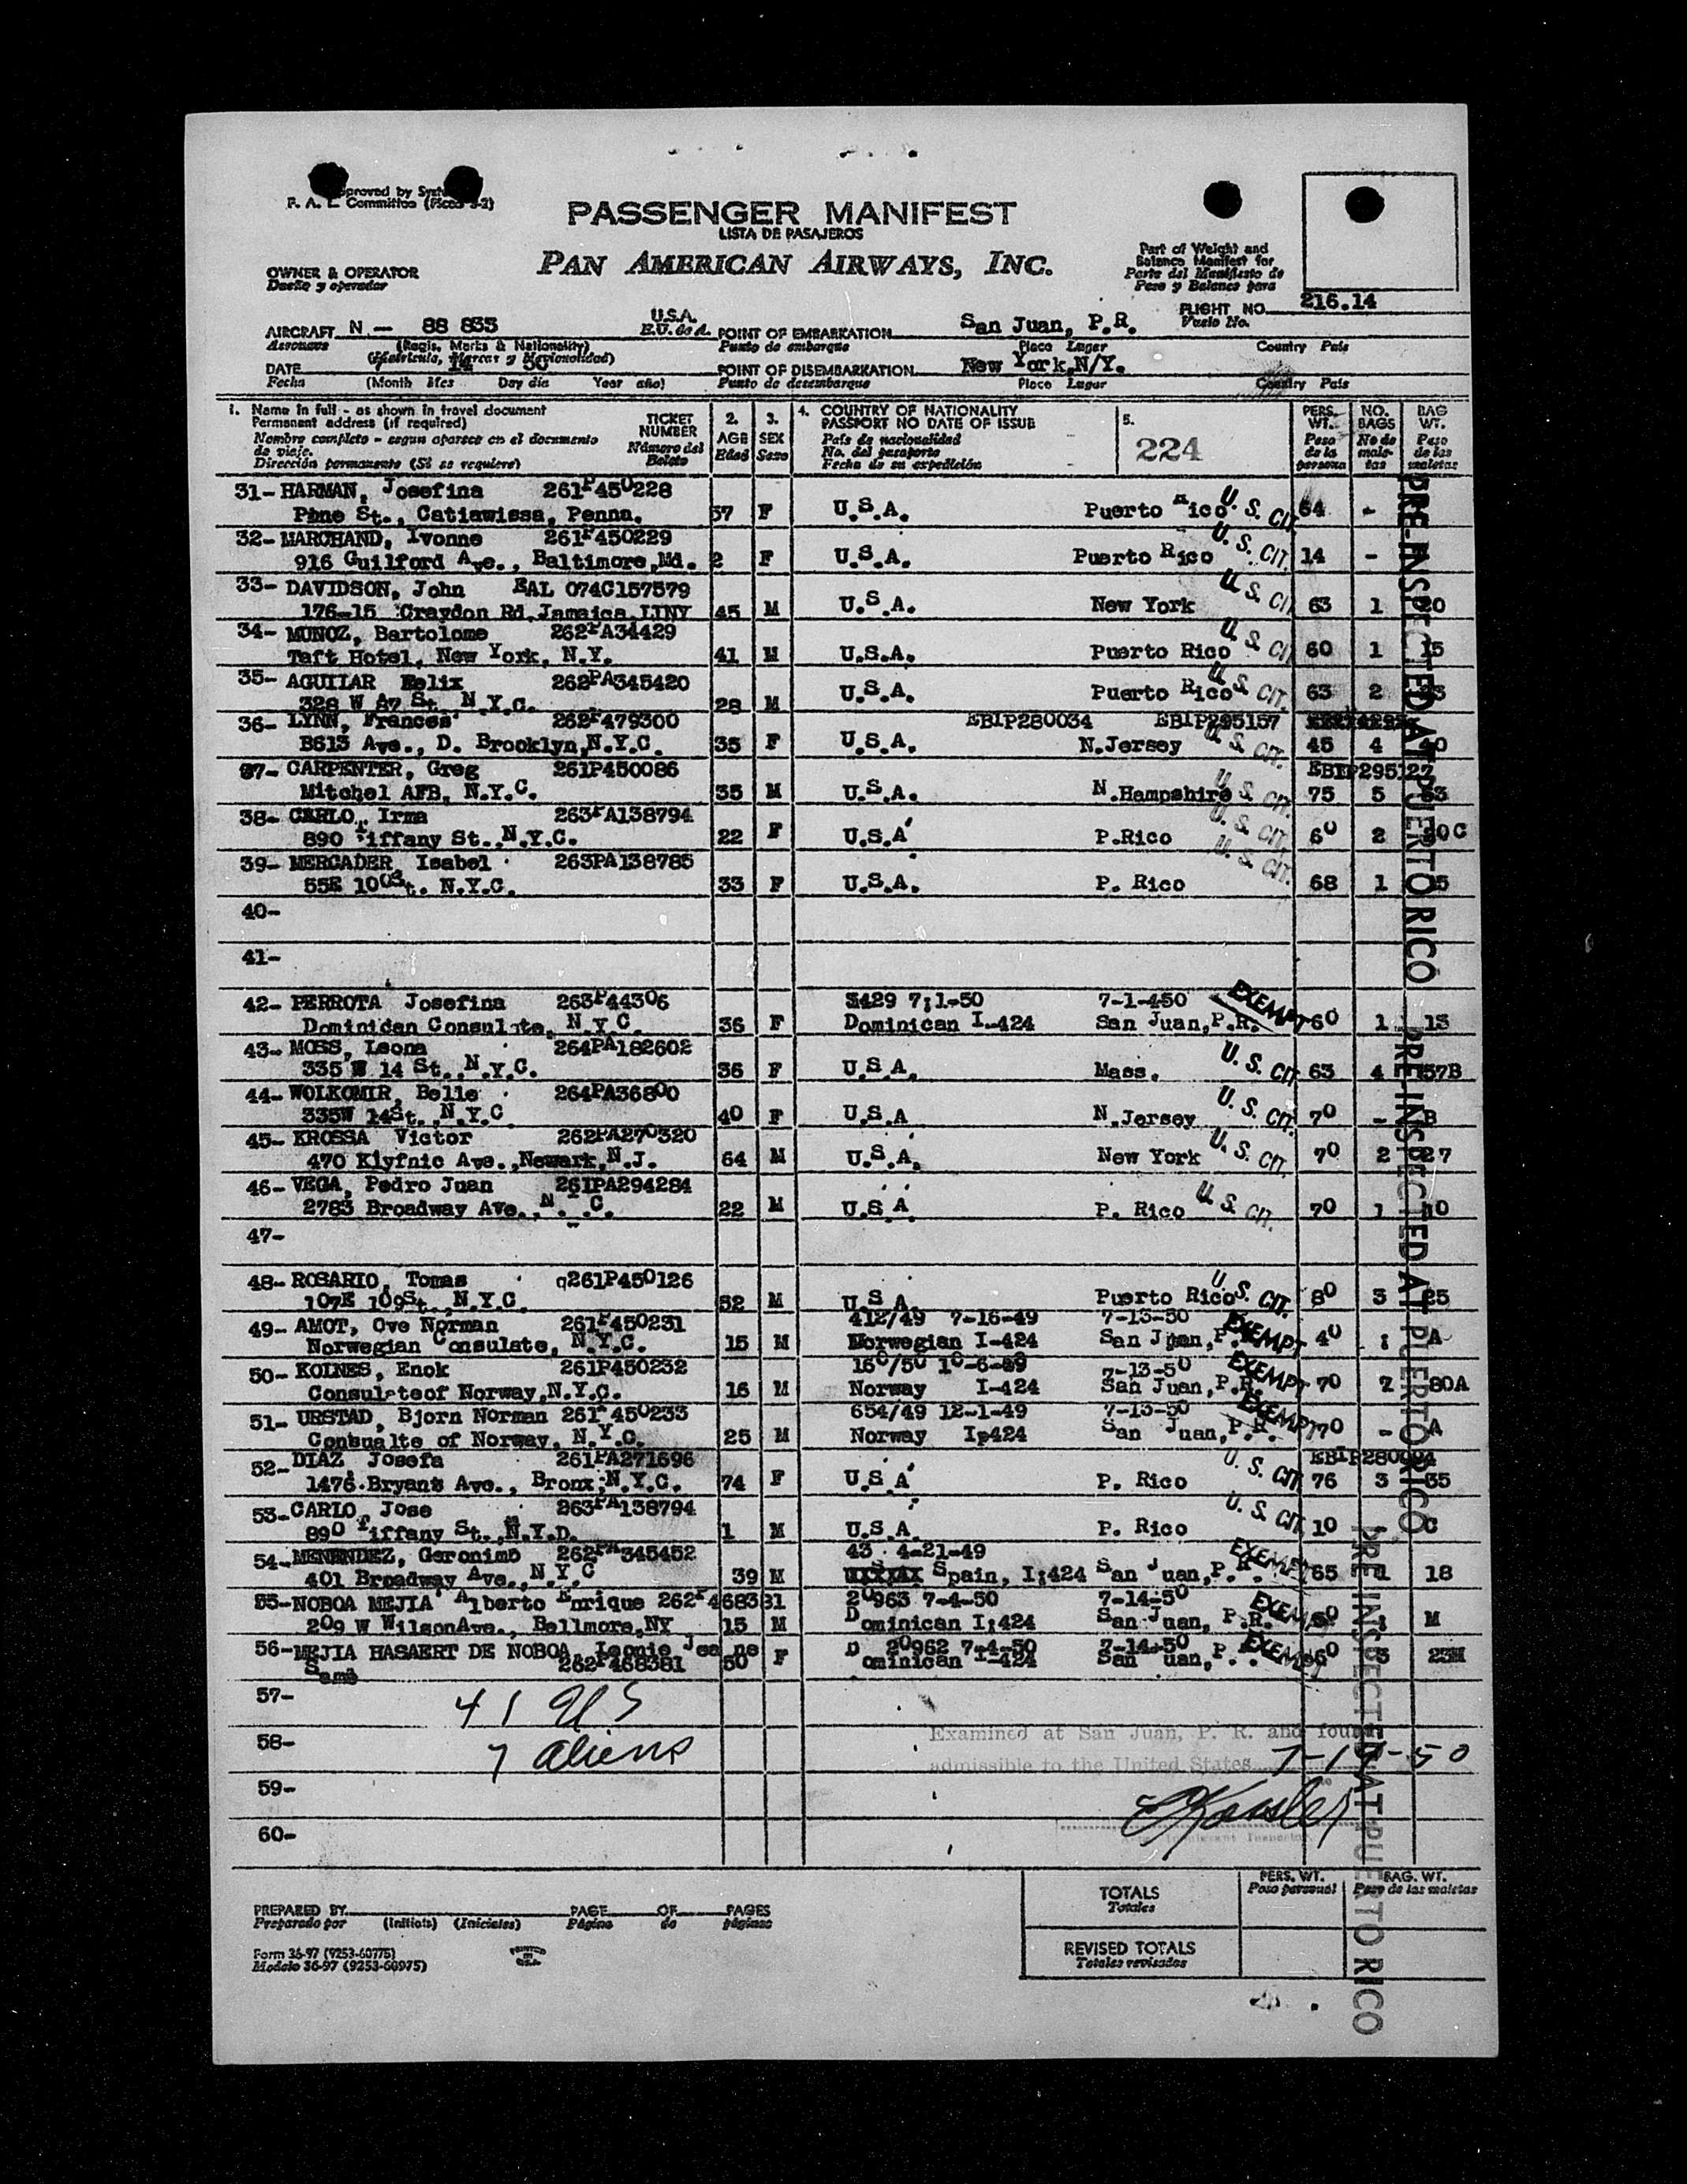 Approved by
P. A. L. Committee
PASSENGER MANIFEST
LISTA DE PASAJEROS
PAN AMERICAN AIRWAYS, INC.
OWNER & OPERATOR
Dueño y operador
Part of Weight and
Balance Manifest for
Parte del Manifiesto de
Peso y Balance para
FLIGHT NO. 216.14
Vuelo No.
AIRCRAFT N — 88 835 U.S.A. E.U. de A. POINT OF EMBARKATION San Juan, P.R.
Aeronave (Regis. Marks & Nationality) Punto de embarque Place Lugar Country País
(Matrícula, Marcas y Nacionalidad)
DATE 14 50 POINT OF DISEMBARKATION New York,N/Y.
Fecha (Month Mes Day día Year año) Punto de desembarque Place Lugar Country País
1. Name in full - as shown in travel document
Permanent address (if required)
Nombre completo - segun aparece en el documento
de viaje.
Dirección permanente (Si se requiere)
TICKET
NUMBER
Número del
Boleto
2.
AGE
Edad
3.
SEX
Sexo
4. COUNTRY OF NATIONALITY
PASSPORT NO DATE OF ISSUE
País de nacionalidad
No. del pasaporte
Fecha de su expedición
5.
224
PERS.
WT.
Peso
de la
persona
NO.
BAGS
No de
male-
tas
BAG
WT.
Peso
de las
maletas
31- HARMAN, Josefina 261P450228
Pine St., Catiawissa, Penna. 57 F U.S.A. Puerto Rico U. S. CIT. 54 -
32- MARCHAND, Ivonne 261P450229
916 Guilford Ave., Baltimore,Md. 2 F U.S.A. Puerto Rico U. S. CIT. 14 -
33- DAVIDSON, John EAL 074C157579
176-15 Craydon Rd,Jamaica,LINY 45 M U.S.A. New York U. S. CIT. 63 1 20
34- MUNOZ, Bartolome 262PA34429
Taft Hotel, New York, N.Y. 41 M U.S.A. Puerto Rico U. S. CIT. 60 1 15
35- AGUILAR Felix 262PA345420
328 W 87 St. N.Y.C. 28 M U.S.A. Puerto Rico U. S. CIT. 63 2
36- LYNN, Frances 262P479300 EBIP280034 EBIP295157
B613 Ave., D. Brooklyn,N.Y.C. 35 F U.S.A. N.Jersey U. S. CIT. 45 4 40
37- CARPENTER, Greg 261P450086 EBIP295127
Mitchel AFB, N.Y.C. 35 M U.S.A. N.Hampshire U. S. CIT. 75 5 63
38- CARLO, Irma 263PA138794
890 Tiffany St.,N.Y.C. 22 F U.S.A P.Rico U. S. CIT. 60 2 C
39- MERCADER, Isabel 263PA138785
55E 100St. N.Y.C. 33 F U.S.A. P. Rico U. S. CIT. 68 1 15
40-
41-
42- PERROTA Josefina 263P44306 3429 7;1-50 7-1-450 EXEMPT
Dominidan Consulate, N.Y.C. 36 F Dominican I-424 San Juan,P.R. 60 1 13
43- MOSS, Leona 264PA182602
335 W 14 St., N.Y.C. 36 F U.S.A. Mass. U. S. CIT. 63 4 157B
44- WOLKOMIR, Belle 264PA36800
335W 14St., N.Y.C 40 F U.S.A N.Jersey U. S. CIT. 70 - B
45- KROSSA Victor 262PA270320
470 Klyfnic Ave.,Newark,N.J. 64 M U.S.A. New York U. S. CIT. 70 2 27
46- VEGA, Pedro Juan 261PA294284
2783 Broadway Ave., N. .C. 22 M U.S.A. P. Rico U. S. CIT. 70 1 10
47-
48- ROSARIO, Tomas q261P450126
107E 109St., N.Y.C. 52 M U.S.A. Puerto Rico U. S. CIT. 80 3 25
49- AMOT, Ove Norman 261P450231 412/49 7-16-49 7-13-50
Norwegian Consulate, N.Y.C. 15 M Norwegian I-424 San Juan,P. EXEMPT 40 A
50- KOLNES, Enok 261P450232 160/50 7-13-50
Consulateof Norway,N.Y.C. 16 M Norway I-424 San Juan,P.R. EXEMPT 70 80A
51- URSTAD, Bjorn Norman 261P450233 654/49 12-1-49 7-13-50
Conbualte of Norway, N.Y.C. 25 M Norway Ip424 San Juan,P.R. EXEMPT 70 - A
52- DIAZ Josefa 261PA271696
1476.Bryant Ave., Bronx,N.Y.C. 74 F U.S.A P. Rico U. S. CIT. 76 3 35
53- CARLO, Jose 263PA138794
890 Tiffany St.,N.Y.D. 1 M U.S.A. P. Rico U. S. CIT. 10 C
54- MENENDEZ, Geronimo 262PA345452 43 4-21-49
401 Broadway Ave., N.Y.C 39 M Spain, I;424 San Juan,P.R. EXEMPT 65 1 18
55- NOBOA MEJIA Alberto Enrique 262P468381 20963 7-4-50 7-14-50
209 W WilsonAve., Bellmore,NY 15 M Dominican I;424 San Juan, P.R. EXEMPT M
56- MEJIA HASAERT DE NOBOA, Leonie Jeanne D 20962 7-4-50 7-14-50
Same 262P468381 50 F ominican I-424 San Juan,P. . EXEMPT 60 3 23M
57-
41 US
58-
7 aliens
Examined at San Juan, P. R. and found
admissible to the United States 7-14-50
59-
60-
Immigrant Inspector
PRE-INSPECTED AT PUERTO RICO
PRE-INSPECTED AT PUERTO RICO
PRE-INSPECTED AT PUERTO RICO
TOTALS
Totales
PERS. WT.
Peso personal
BAG. WT.
Peso de las maletas
REVISED TOTALS
Totales revisados
PREPARED BY PAGE OF PAGES
Preparado por (Initials) (Iniciales) Página de páginas
Form 36-97 (9253-60975)
Modelo 36-97 (9253-60975)
PRINTED
IN
U.S.A.